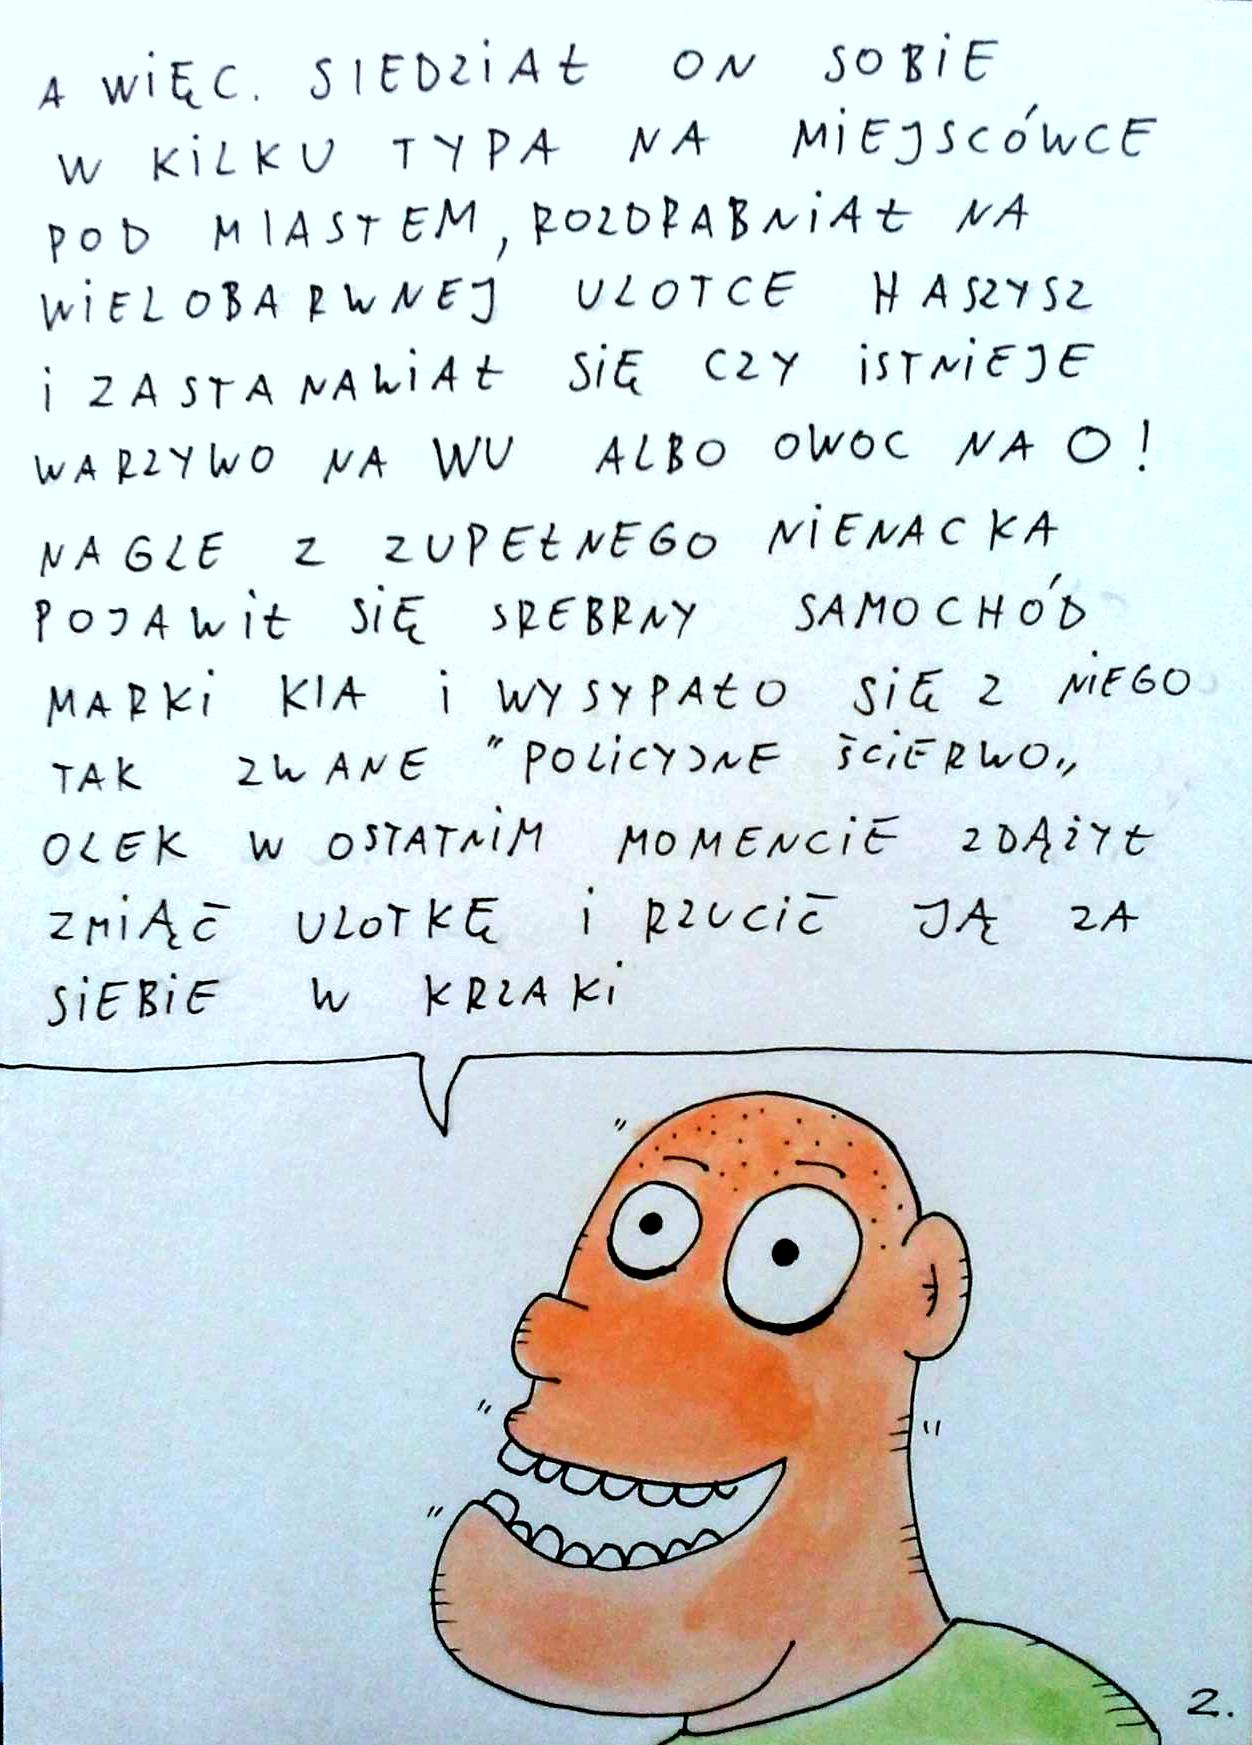 A WIĘC. SIEDZIAŁ ON SOBIE
W KILKU TYPA NA MIEJSCÓWCE
POD MIASTEM, ROZDRABNIAŁ NA
WIELOBARWNEJ ULOTCE HASZYSZ
I ZASTANAWIAŁ SIĘ CZY ISTNIEJE
WARZYWO NA WU ALBO OWOC NA O!
NAGLE Z ZUPEŁNEGO NIENACKA
POJAWIŁ SIĘ SREBRNY SAMOCHÓD
MARKI KIA I WYSYPAŁO SIĘ Z NIEGO
TAK ZWANE "POLICYJNE ŚCIERWO„
OLEK W OSTATNIM MOMENCIE ZDĄŻYŁ
ZMIĄĆ ULOTKĘ I RZUCIĆ JĄ ZA
SIEBIE W KRZAKI
2.